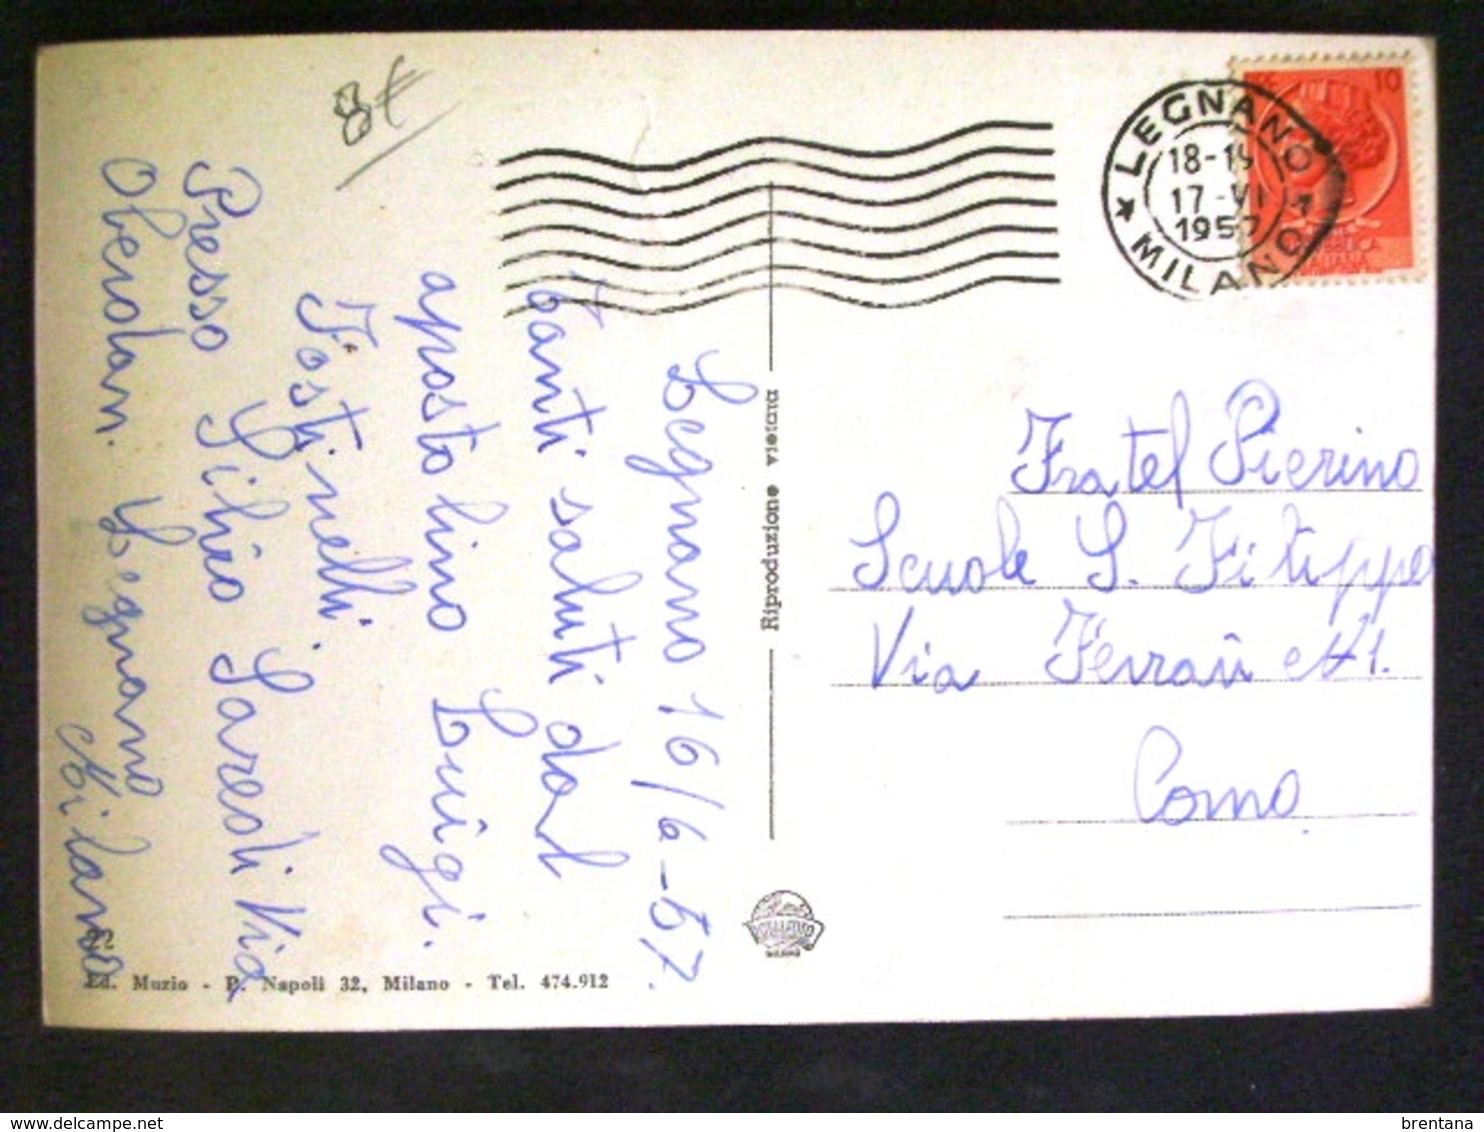 8€
LEGNANO
18-19
17-VI
1957
MILANO
10
Legnano 16/6-57.
tanti saluti dal
apostolino Luigi.
Fostinelli.
Presso Silvio Saresti Via
Oberdan. Legnano
Milano
Riproduzione vietata
Fratel Pierino
Scuole S. Filippo
Via Ferrari N1.
Como
22
Ed. Muzio - P. Napoli 32, Milano - Tel. 474.912
brentana